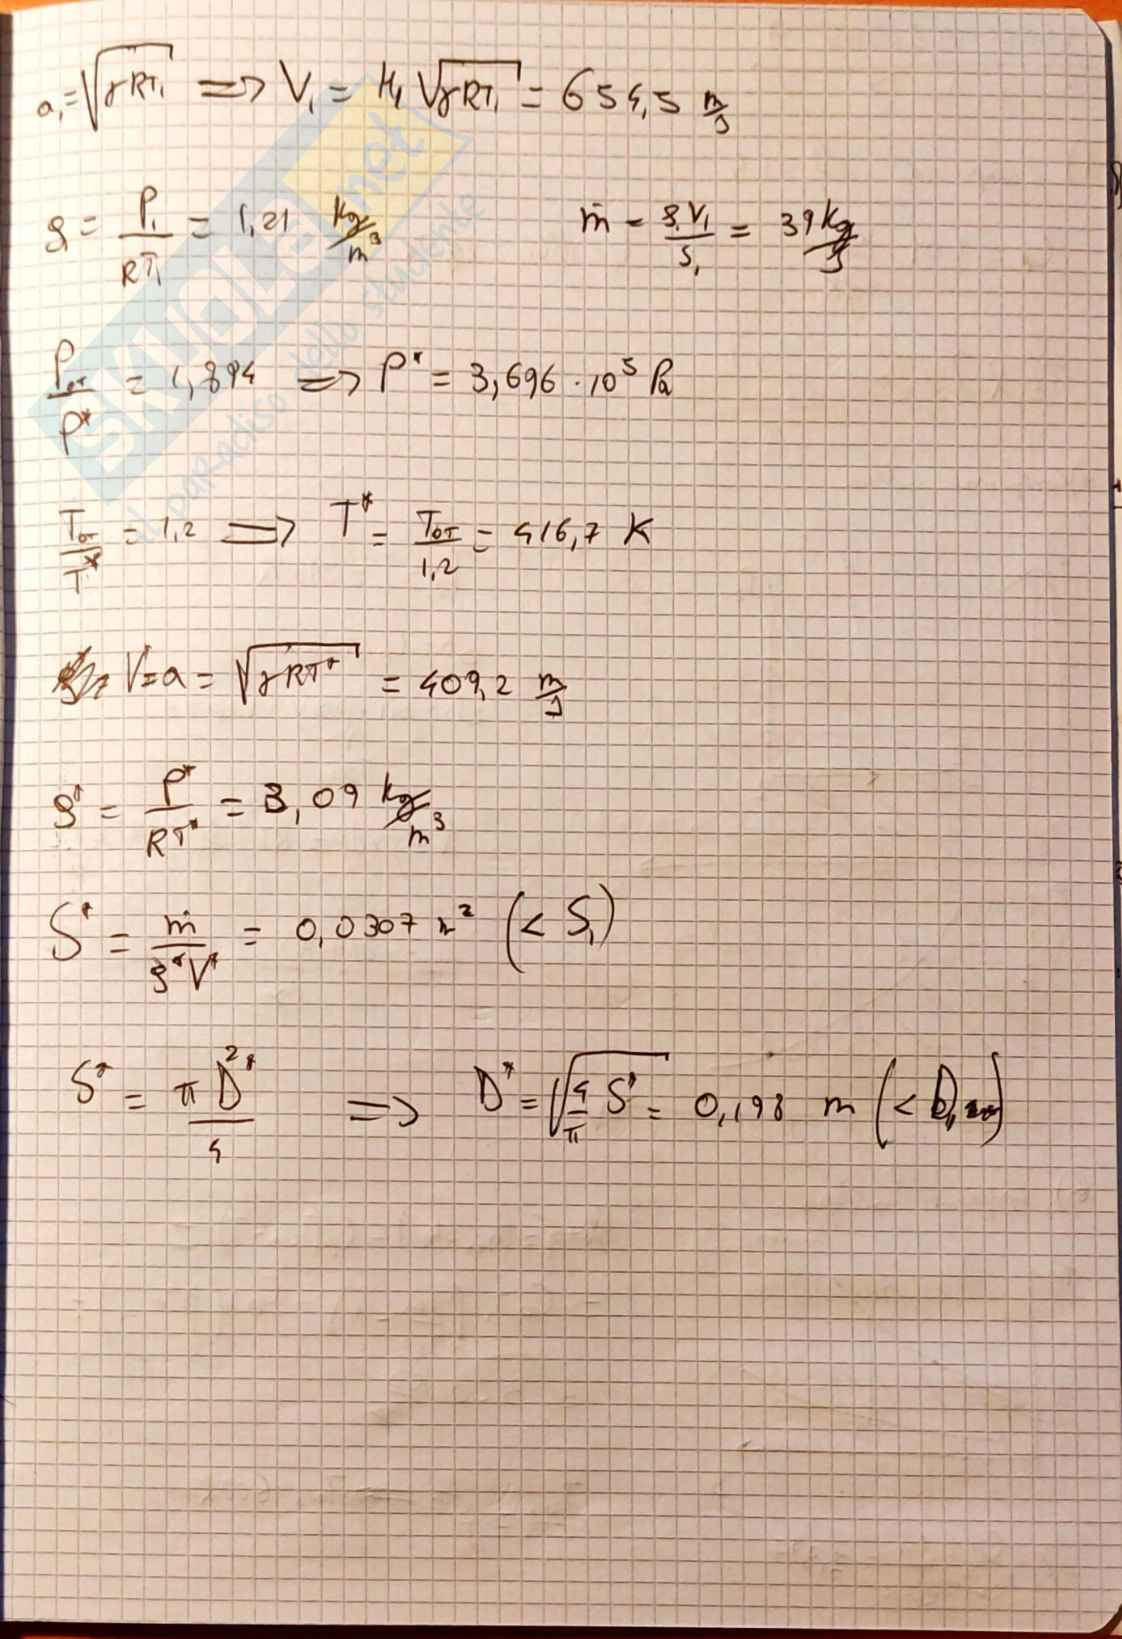 a₁ = √(γRT₁) ⟹ V₁ = M₁ √(γRT₁) = 654,5 m/s
ρ₁ = P₁/RT₁ = 1,21 kg/m³ ṁ = ρ₁V₁/S₁ = 39 kg/s
P₀T/P* = 1,894 ⟹ P* = 3,696 · 10⁵ Pa
T₀T/T* = 1,2 ⟹ T* = T₀T/1,2 = 416,7 K
V=a = √(γRT*) = 409,2 m/s
ρ* = P*/RT* = 3,09 kg/m³
S* = ṁ/ρ*V* = 0,0307 m² (< S₁)
S* = πD²*/4 ⟹ D* = √(4/π S*) = 0,198 m (< D₁)
SKUOLA.net
il paradiso dello studente